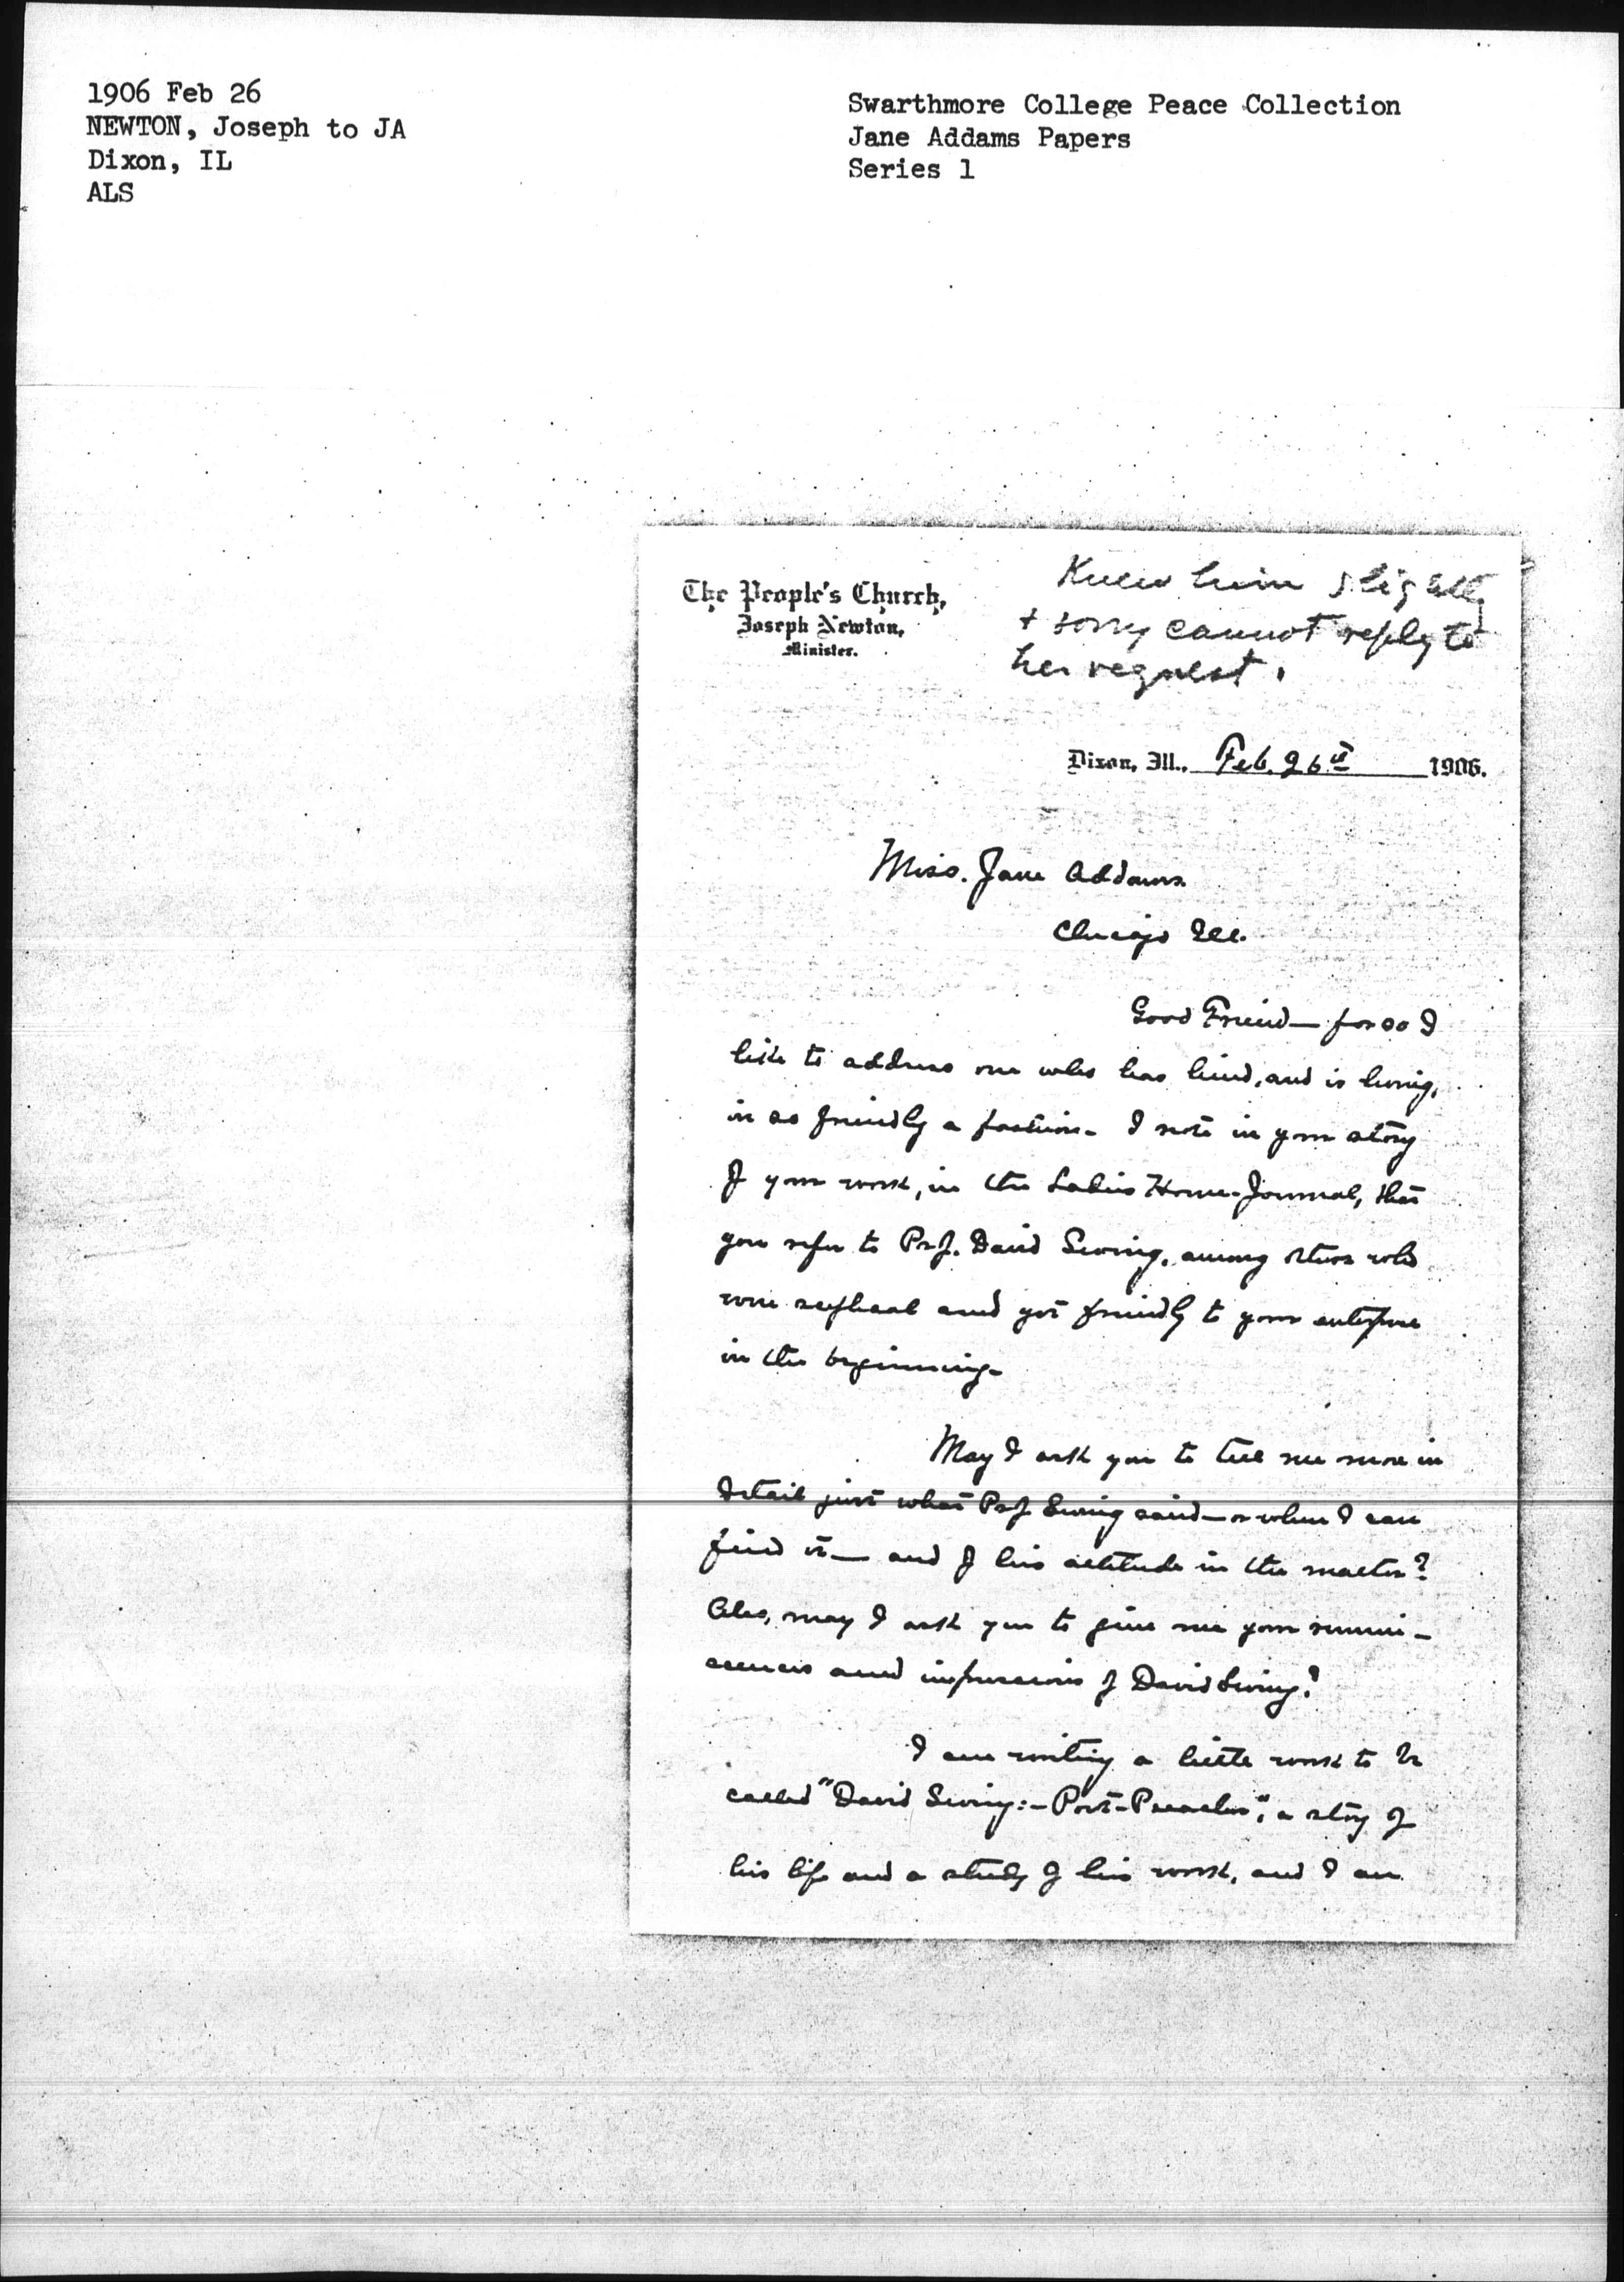 1906 Feb 26
NEWTON, Joseph to JA
Dixon, IL
ALS
Swarthmore College Peace Collection
Jane Addams Papers
Series 1
The People's Church,
Joseph Newton,
Minister.
Knew him slightly
+ sorry cannot reply to
her request.
Dixon, Ill., Feb. 26th 1906.
Miss. Jane Addams
Chicago Ill.
Good Friend— for so I
like to address one who has lived, and is living,
in so friendly a fashion. I note in your story
of your work, in the Ladies Home-Journal, that
you refer to Prof. David Swing, among others who
were skeptical and yet friendly to your enterprise
in the beginning.
May I ask you to tell me more in
detail just what Prof Swing said— or where I can
find it— and of his attitude in the matter?
Also, may I ask you to give me your remini-
scences and impressions of David Swing?
I am writing a little work to be
called "David Swing:- Poet-Preacher", a story of
his life and a study of his work, and I am